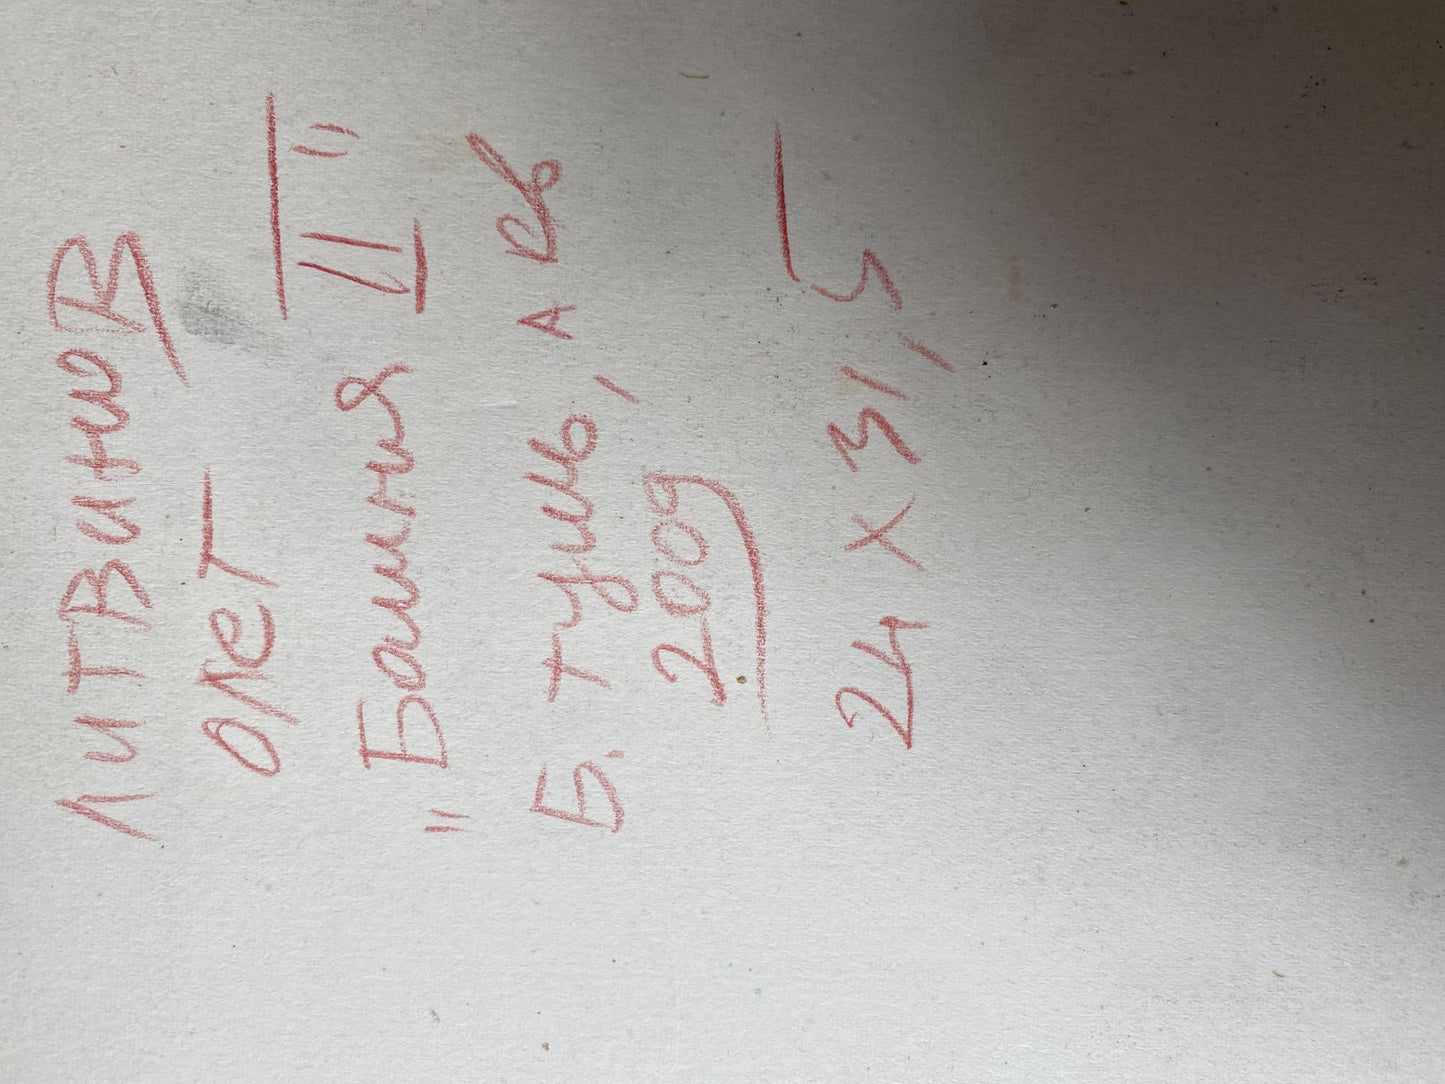 ЛИТВИНОВ
ОЛЕГ
"Башня II"
Б. тушь, акв
2009
24 x 31,5